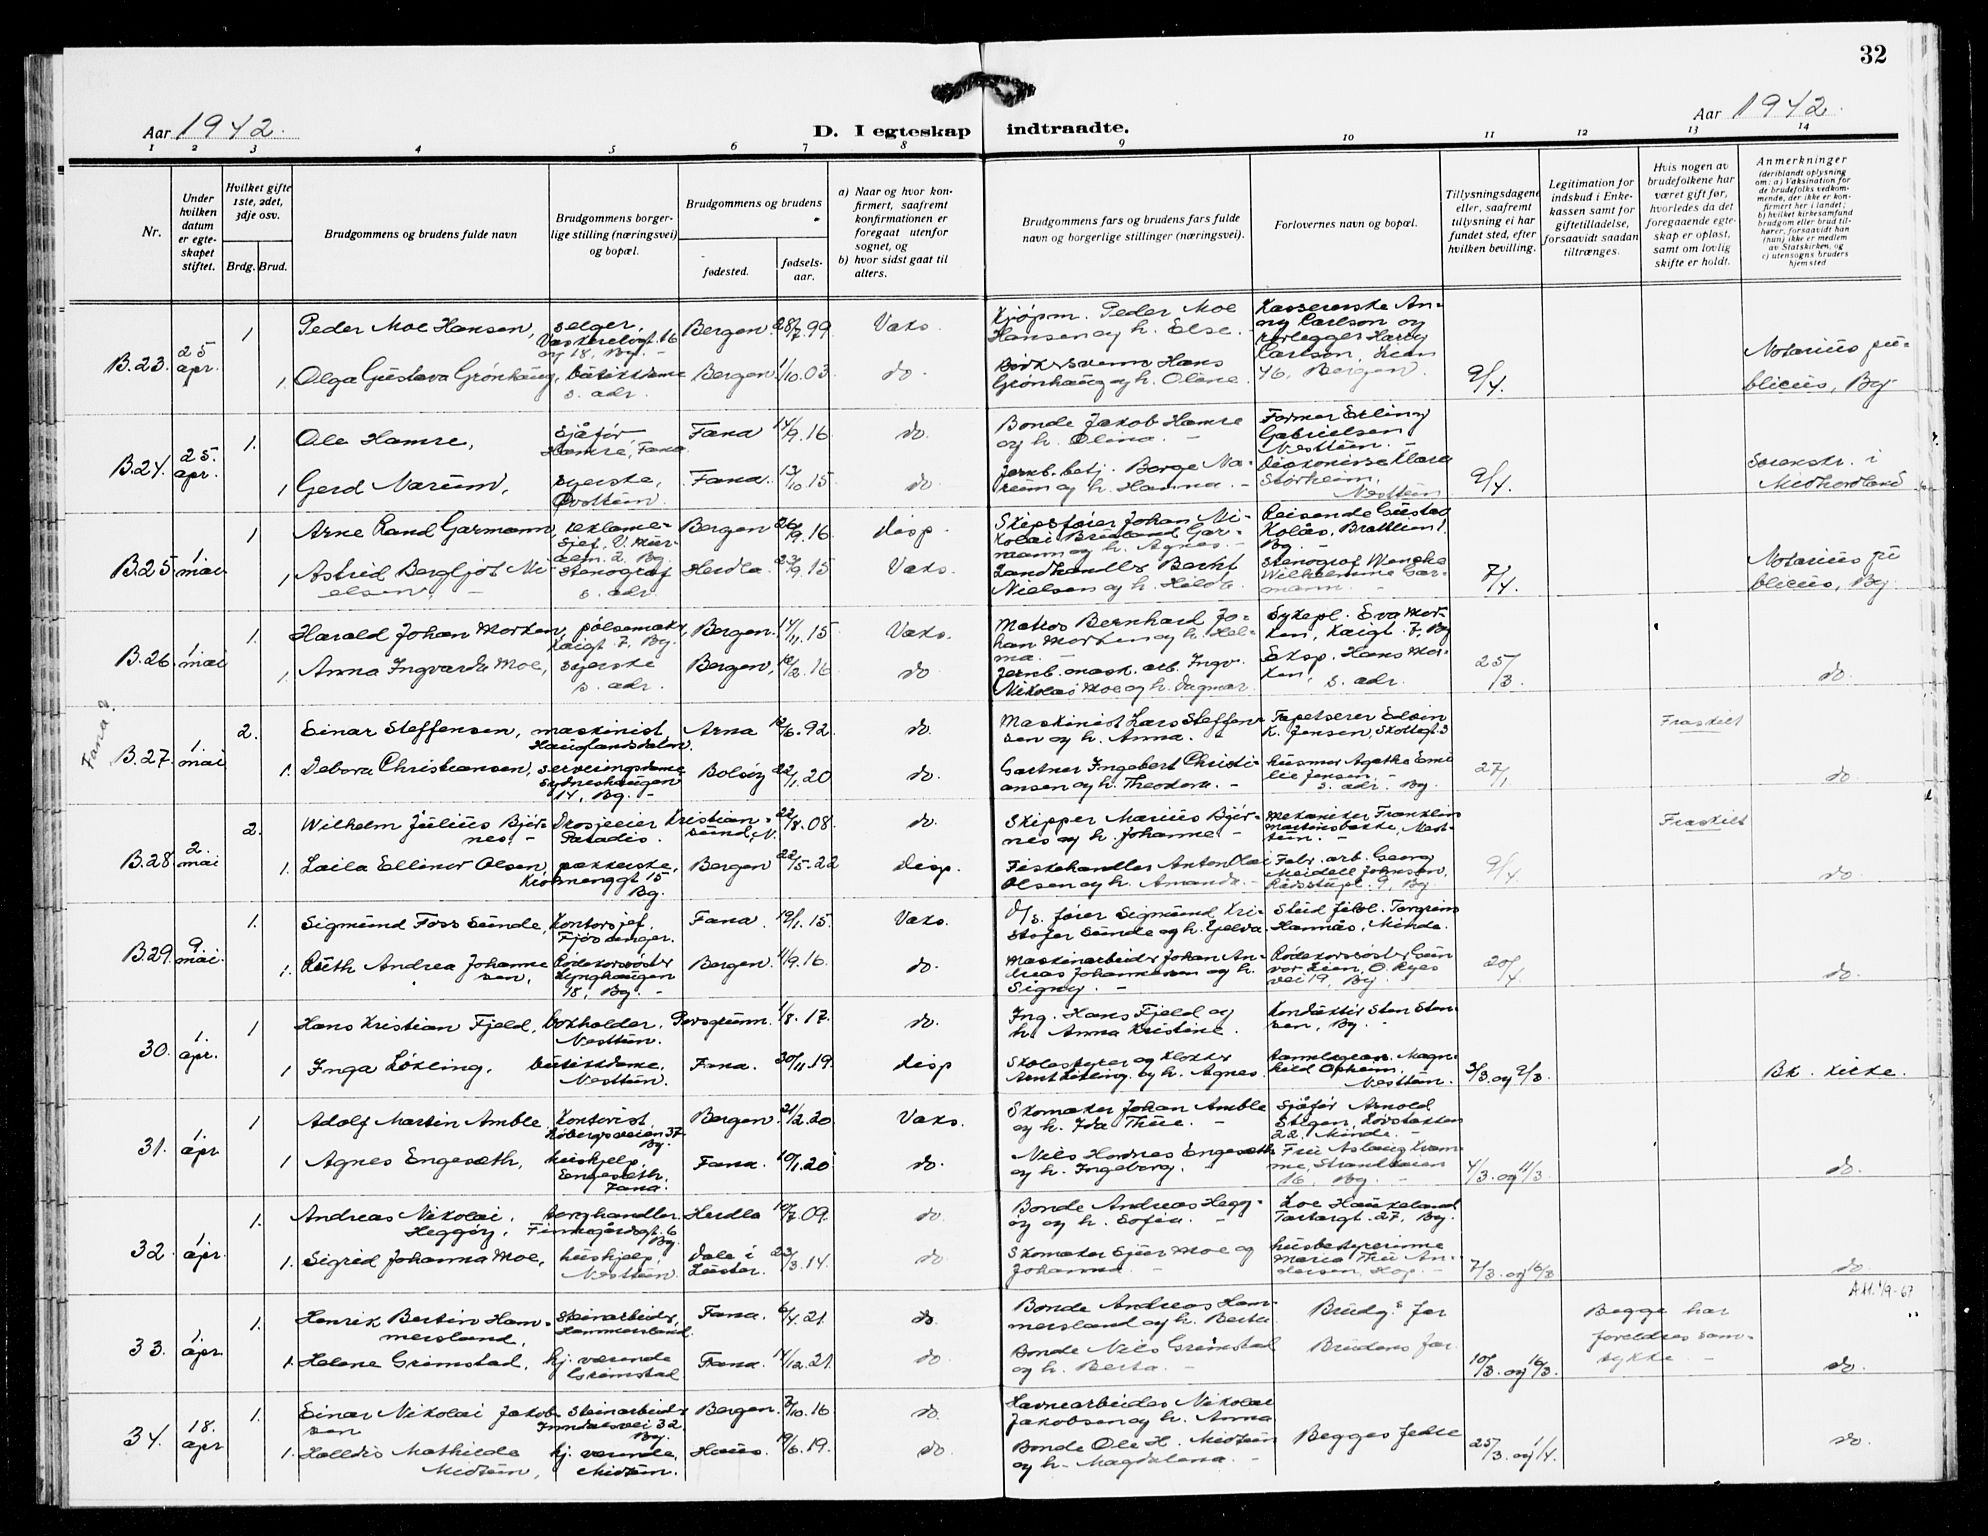 32
Aar 1942. D. I egteskap indtraadte. Aar 1942.
1 2 3 4 5 6 7 8 9 10 11 12 13 14
Nr.
Under hvilken datum er egteskapet stiftet.
Hvilket gifte 1ste, 2det, 3dje osv.
Brdg. Brud.
Brudgommens og brudens fulde navn
Brudgommens borgerlige stilling (næringsvei) og bopæl.
Brudgommens og brudens
fødested.
fødselsaar.
a) Naar og hvor konfirmert, saafremt konfirmationen er foregaat utenfor sognet, og
b) hvor sidst gaat til alters.
Brudgommens fars og brudens fars fulde navn og borgerlige stillinger (næringsvei).
Forlovernes navn og bopæl.
Tillysningsdagene eller, saafremt tillysning ei har fundet sted, efter hvilken bevilling.
Legitimation for indskud i Enkekassen samt for giftetilladelse, forsaavidt saadan tiltrænges.
Hvis nogen av brudefolkene har været gift før, hvorledes da det foregaaende egteskap er opløst, samt om lovlig skifte er holdt.
Anmerkninger (deriblandt oplysning om: a) Vaksination for de brudefolks vedkommende, der ikke er konfirmert her i landet; b) hvilket kirkesamfund brudgom eller brud tilhører, forsaavidt han (hun) ikke er medlem av Statskirken, og c) utensogns bruders hjemsted
B.23. 25 apr. 1 Peder Moe Hansen, selger, 16 og 18, Bg. Bergen 28/7 99 Vaks. Kjøpm. Peder Moe Hansen og h. Else. Kassererske Anny Carlson og rørlegger Harry Carlson, 46, Bergen.
1. Olga Gustava Grønhaug, butikkdame s. adr. Bergen 1/10 03 do. Hans Grønhaug og h. Olene. 9/4. Notarius publicus, Bg
B.24. 25. apr. 1. Ole Hamre, sjåfør Hamre, Fana Fana 14/9. 16 do. Bonde Jakob Hamre og h. Olina. Farmer Erling Gabrielsen Nesttun.
1 Gerd Narum, syerske, Øvsttun Fana. 13/10 15 do. Jernb. betj. Borge Narum og h. Hanna. Diakonisse Klara Storheim, Nesttun 9/4. Sorenskr. i Midhordland
B.25 1. mai 1 Arne Rand Garmann, reklamesjef, V. Muralm. 2, Bg Bergen 26/9. 16 disp. Skipsfører Johan Nikolai Garmann og h. Agnes. Reisende Gustav Kolås, Brattlien 1 Bg.
1 Astrid Bergljot Nielsen, stenograf s. adr. Herdla 23/9 15 Vaks. Landhandler Berht Nielsen og h. Hilda Stenograf Wenche Wilhelmine Garmann. 7/4. Notarius publicus, Bg
B.26 1. mai 1. Harald Johan Morken, pølsemaker, Kaigt 7, Bg. Bergen. 14/11. 15 Vaks. Matros Bernhard Johan Morken og h. Helma. Sykepl. Eva Morken, Kaigt. 7, Bg
1. Anna Ingvarda Moe, syerske s. adr. Bergen, 12/2. 16 do Jernb. mask. arb. Ingv. Nikolai Moe og h. Dagmar Eksp. Hans Morken, s. adr. 25/3 do.
Fana?
B.27. 1. mai 2. Einar Steffensen, maskinist Hauglandsdalen Arna 12/6. 92 do Maskinist Lars Steffensen og h. Anna. Tapetserer Edvin K. Jensen, Skottegt 3 Fraskilt
1. Debora Christiansen, serveringsdame Sydneshaugen 14, Bg. Bolsøy 22/1. 20 do. Gartner Ingebert Christiansen og h. Theodora. husmor Agathe Emilie Jensen, s. adr. Bg. 27/1 do
B.28 2. mai 2. Wilhelm Julius Bjørnes, Drosjeeier Paradis. Kristiansund, N. 22/8. 08 do. Skipper Marius Bjørnes og h. Johanne Mekaniker Franklin Martinsbakke, Nesttun. Fraskilt
1. Laila Ellinor Olsen, pakkerske, Krohnenggt 15 Bg. Bergen 22/5. 22 disp. Fiskehandler Anton Olai Olsen og h. Amanda. Fabr. arb. Georg Meidell Johnsen, Rådstupl. 9, Bg 9/4 do
B.29. 9. mai. 1. Sigmund Foss Sunde, kontorsjef. Fjøsanger. Fana. 19/1. 15 Vaks. D/S. fører Sigmund Kristofer Sunde og h. Gelva Stud. filol. Torgrim Hannås, Minde.
1. Ruth Andrea Johannessen, Rødekorssøster Lynghaugen 18, Bg. Bergen. 11/9. 16 do. Maskinarbeider Johan Andreas Johannessen og h. Signy. Rødekorssøster Gunvor Lien, O. Ryes vei 19, Bg. 20/4. do.
30. 1. apr. 1 Hans Kristian Fjeld, bokholder. Nesttun. Porsgrunn. 1/8. 17. do. Ing. Hans Fjeld og h. Anna Kristine. Konduktør Sten Stensen, Bg.
1 Inga Løkling, butikkdame, Nesttun. Fana. 30/11. 19 disp Skolestyrer og klokker Arnt Løkling og h. Agnes. tannlegeass. Magnhild Opheim, Nesttun. 3/3. og 9/3. Bk. kirke.
31. 1. apr 1 Adolf Martin Amble, kontorist, Løbergsveien 37 Bg. Bergen 21/2. 20 Vaks. Skomaker Johan Amble og h. Ida Thue. Sjåfør Arnold Stigen, Løvstakken 22, Minde.
1 Agnes Engesæth, hushjelp, Engesæth, Fana. Fana. 19/1. 20 do. Nils Hordnes Engesæth og h. Ingeborg. Fru Aslaug Kvamme, Strandkaien 16, Bg. 4/3. og 11/3 do.
32. 1. apr. 1. Andreas Nikolai Heggøy, torghandler. Finnegårdsgt. 6 Bg. Herdla 10/7. 09. do. Bonde Andreas Heggøy og h. Sofia. Haukeland Tartargt. 27, Bg.
1. Sigrid Johanna Moe, hushjelp, Nesttun. Dale i Luster. 23/3. 14. do. Skomaker Sjur Moe og Johanna husbestyrerinne Maria Andersen, Hop. 7/3. og 16/3 do
33. 1. apr 1. Henrik Bertin Hammersland, steinarbeider, Hammersland. Fana. 6/4. 21. do. Bonde Andreas Hammersland og h. Berta Brudg.s far Begge har foreldres samtykke. A.H. 1/9-67
1. Helene Grimstad, hj. værende Grimstad Fana. 14/12. 21. do. Bonde Nils Grimstad og h. Berta. Brudens far 10/3. og 16/3. do.
34. 18. apr 1. Einar Nikolai Jakobsen steinarbeider Inndalsvei 32 Bg. Bergen. 2/10. 16 do. Havnearbeider Nikolai Jakobsen og h. Anna Begges fedre
1. Halldis Mathilde Midtun, hj. værende, Midtun. Haus. 19/6. 19. do. Bonde Ole H. Midtun og h. Magdalena. 25/3. og 1/4. do.